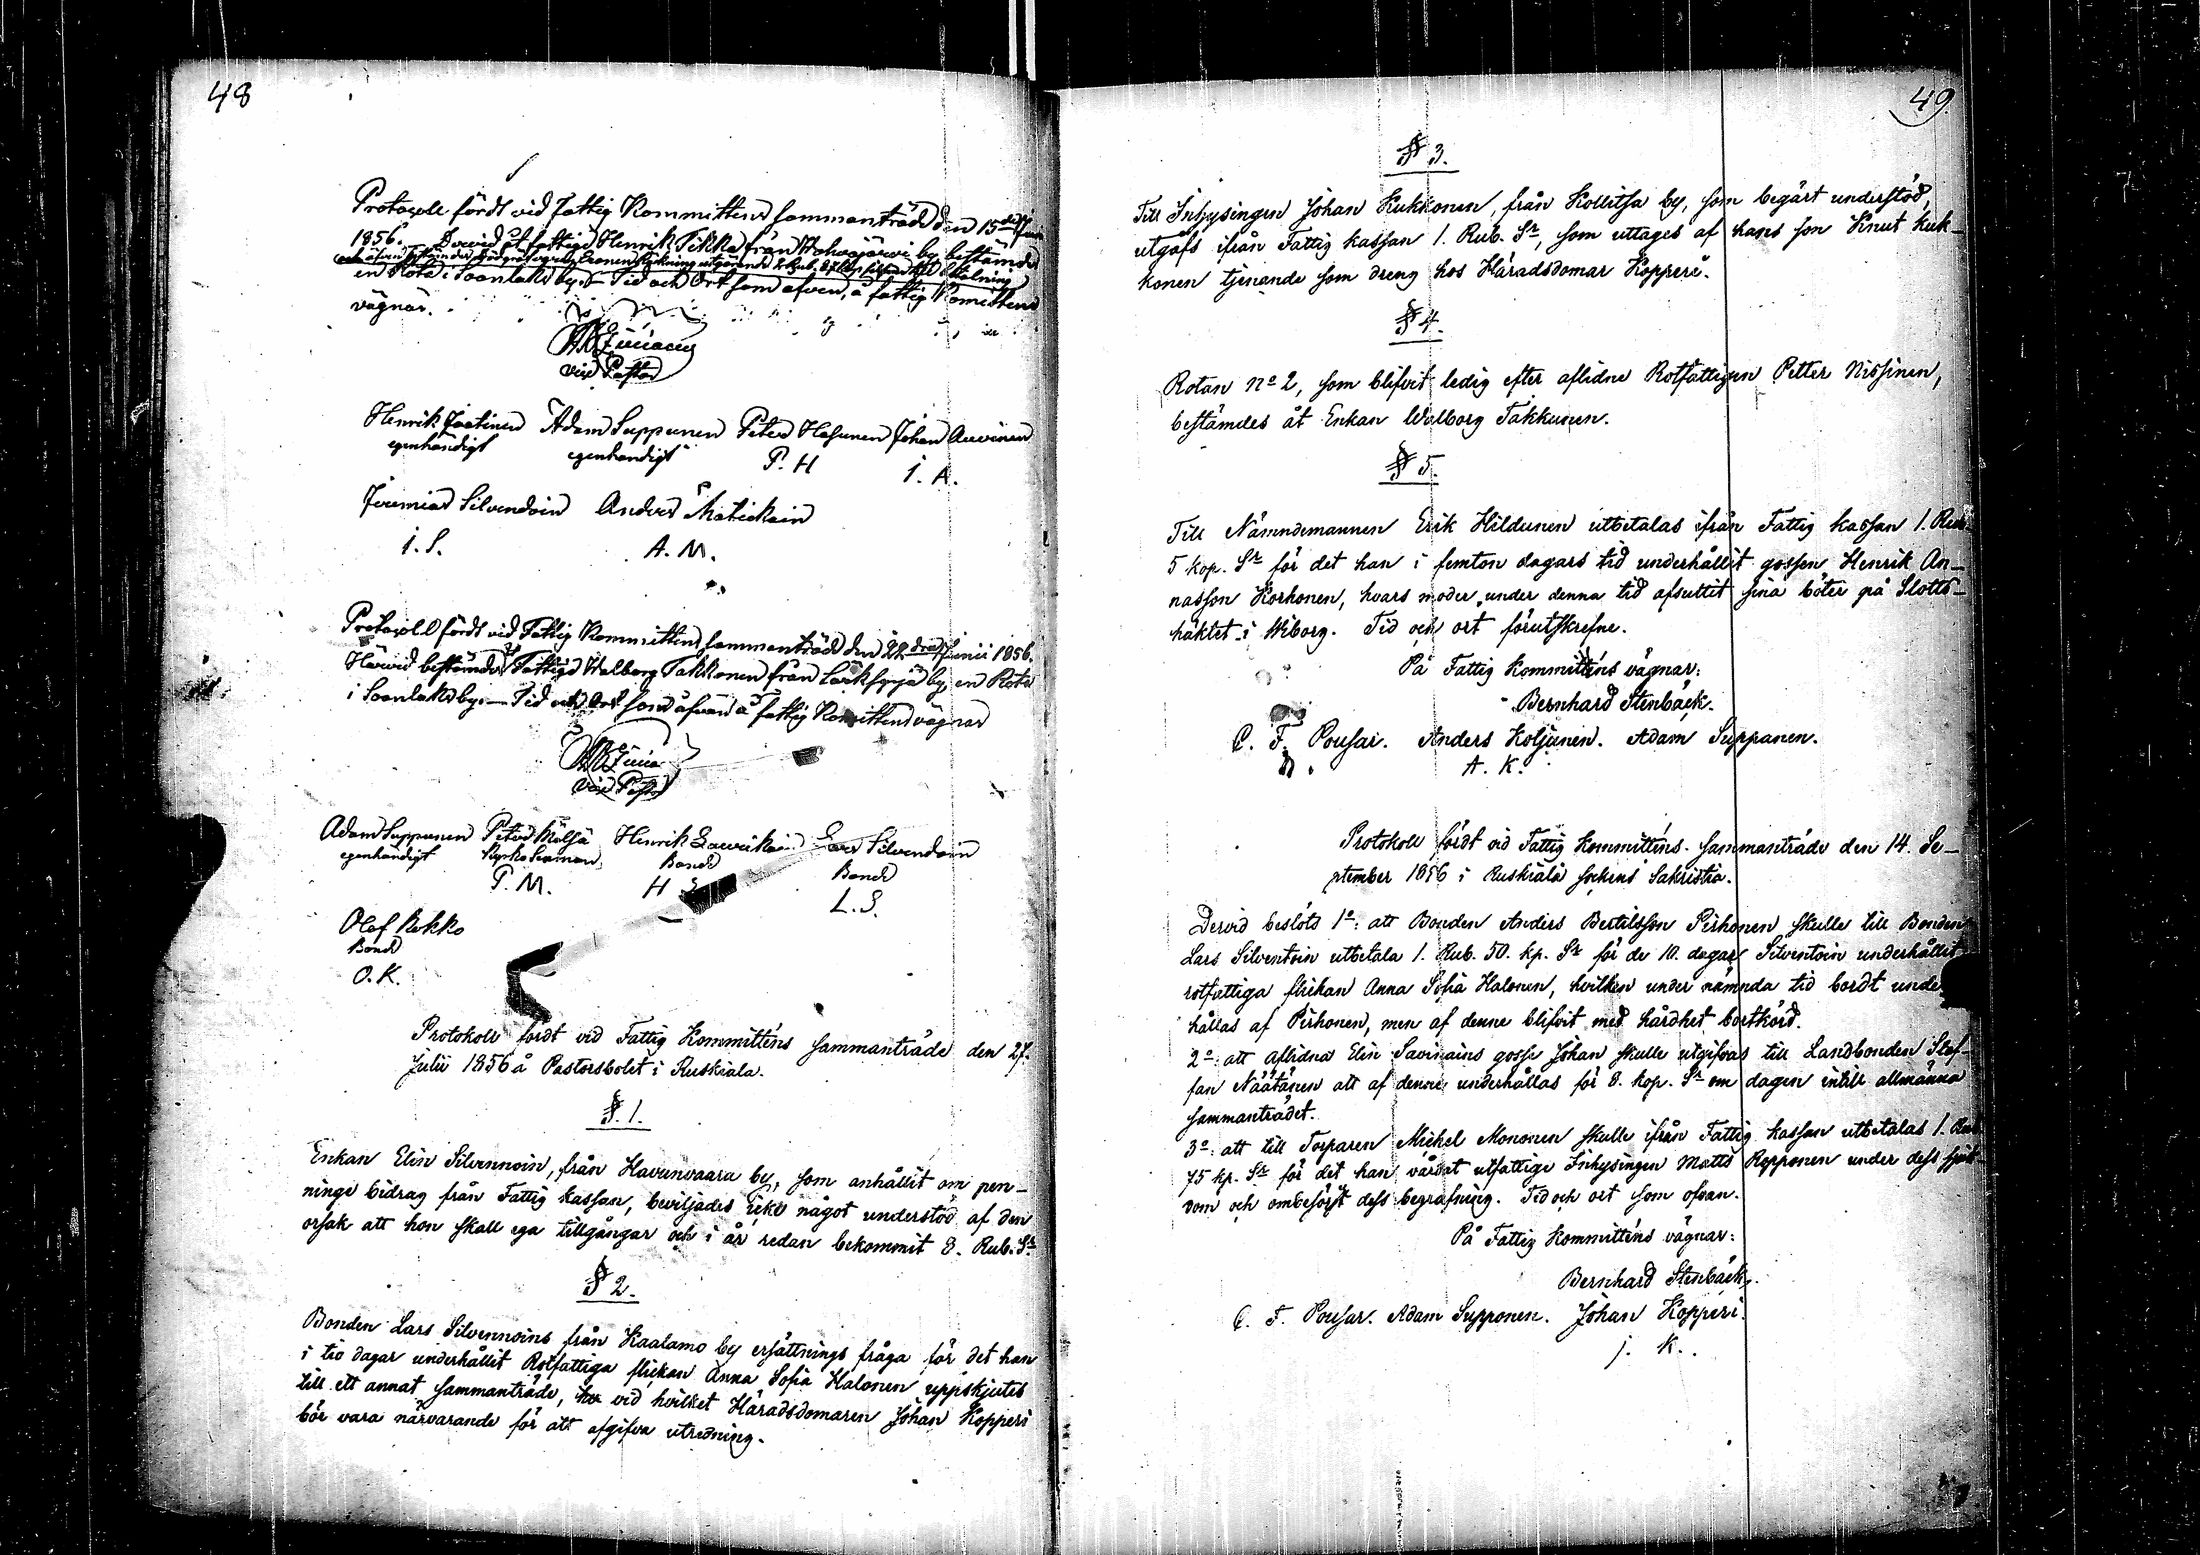 48
Protocoll fördt vid Fattig Kommittens sammanträde den 15de Junii
1856. Dervid åt fattige Henrik Tikka från bestämdes
en Rote i Soanlaks by. Tid och Ort som ofvan, å fattig Komittens
vägnar.
vice Pastor
Henrik Jaatinen Adam Suppunen Peter Hasunen Johan Auvinen
egenhändigt egenhändigt P. H I. A.
Jeremias Silvendoin Anders Matickain
I. S. A. M.
Protocoll fördt vid Fattig Kommittens sammanträde den 22dra Junii 1856.
Härvid bestämdes åt Fattiga Walborg Takkonen från by en Rote
i Soanlaks by. — Tid och Ort som ofvan å fattig Komittens vägnar
vice Pastor
Adam Suppunen Peter Mälsä Henrik Laurikain Lars Silvendoin
egenhändigt Kyrko Sexman Bonde Bonde
P. M. H L L. S.
Olof Kekko
Bonde
O. K.
Protokoll fördt vid Fattig Kommitténs sammanträde den 27.
Julii 1856 å Pastorsbolet i Ruskiala.
§. 1.
Enkan Elin Silvennoin, från Havunvaara by, som anhållit om pen-
ninge bidrag från Fattig kassan, beviljades icke något understöd af den
orsak att hon skall ega tillgångar och i år redan bekommit 8. Rub. Sr
§ 2.
Bonden Lars Silvennoins från Kaalamo by ersättnings fråga för det han
i tio dagar underhållit Rotfattiga flickan Anna Sofia Halonen uppskjutes
till ett annat sammanträde, vid hvilket Häradsdomaren Johan Kopperi
bör vara närvarande för att afgifva utredning.
49.
§ 3.
Till Inhysingen Johan Kukkonen, från Kollitsa by, som begärt understöd,
utgafs ifrån Fattig kassan 1. Rub. Sr som uttages af hans son Knut Kuk-
konen tjenande som dreng hos Häradsdomar Kopperi.
§ 4.
Rotan No 2, som blifvit ledig efter aflidne Rotfattigen Petter Nissinen,
bestämdes åt Enkan Walborg Takkunen.
§ 5.
Till Nämndemannen Erik Hildunen utbetalas ifrån Fattig kassan 1. Rub.
5 kop. Sr för det han i femton dagars tid underhållit gossen Henrik An-
nasson Korhonen, hvars moder under denna tid afsuttit sina böter på Slotts-
häktet i Wiborg. Tid och ort förutskrefne.
På Fattig Kommitténs vägnar:
Bernhard Stenbäck.
C. F. Pousar. Anders Koljunen. Adam Suppanen.
A. K.
Protokoll fördt vid Fattig Kommitténs sammanträde den 14. Se-
ptember 1856 i Ruskiala sockens Sakristia.
Dervid beslöts 1o: att Bonden Anders Bertilsson Pirhonen skulle till Bonden
Lars Silventoin utbetala 1. Rub. 50. kp. Sr för de 10. dagar Silventoin underhållit
rotfattiga flickan Anna Sofia Halonen, hvilken under nämnda tid bordt under
hållas af Pirhonen, men af denne blifvit med hårdhet bortkörd.
2o: att aflidna Elin Savinains gosse Johan skulle utgifvas till Landbonden Stef-
fan Näätänen att af denne underhållas för 8. kop. Sr om dagen intill allmänna
sammanträdet.
3o: att till Torparen Michel Mononen skulle ifrån Fattig kassan utbetalas 1. Rub
75 kp. Sr för det han vårdat utfattige Inhysingen Matts Repponen under dess sjuk
dom och ombesörjt dess begrafning. Tid och ort som ofvan.
På Fattig Kommitténs vägnar:
Bernhard Stenbäck.
C. F. Pousar. Adam Supponen. Johan Kopperi.
j. K.